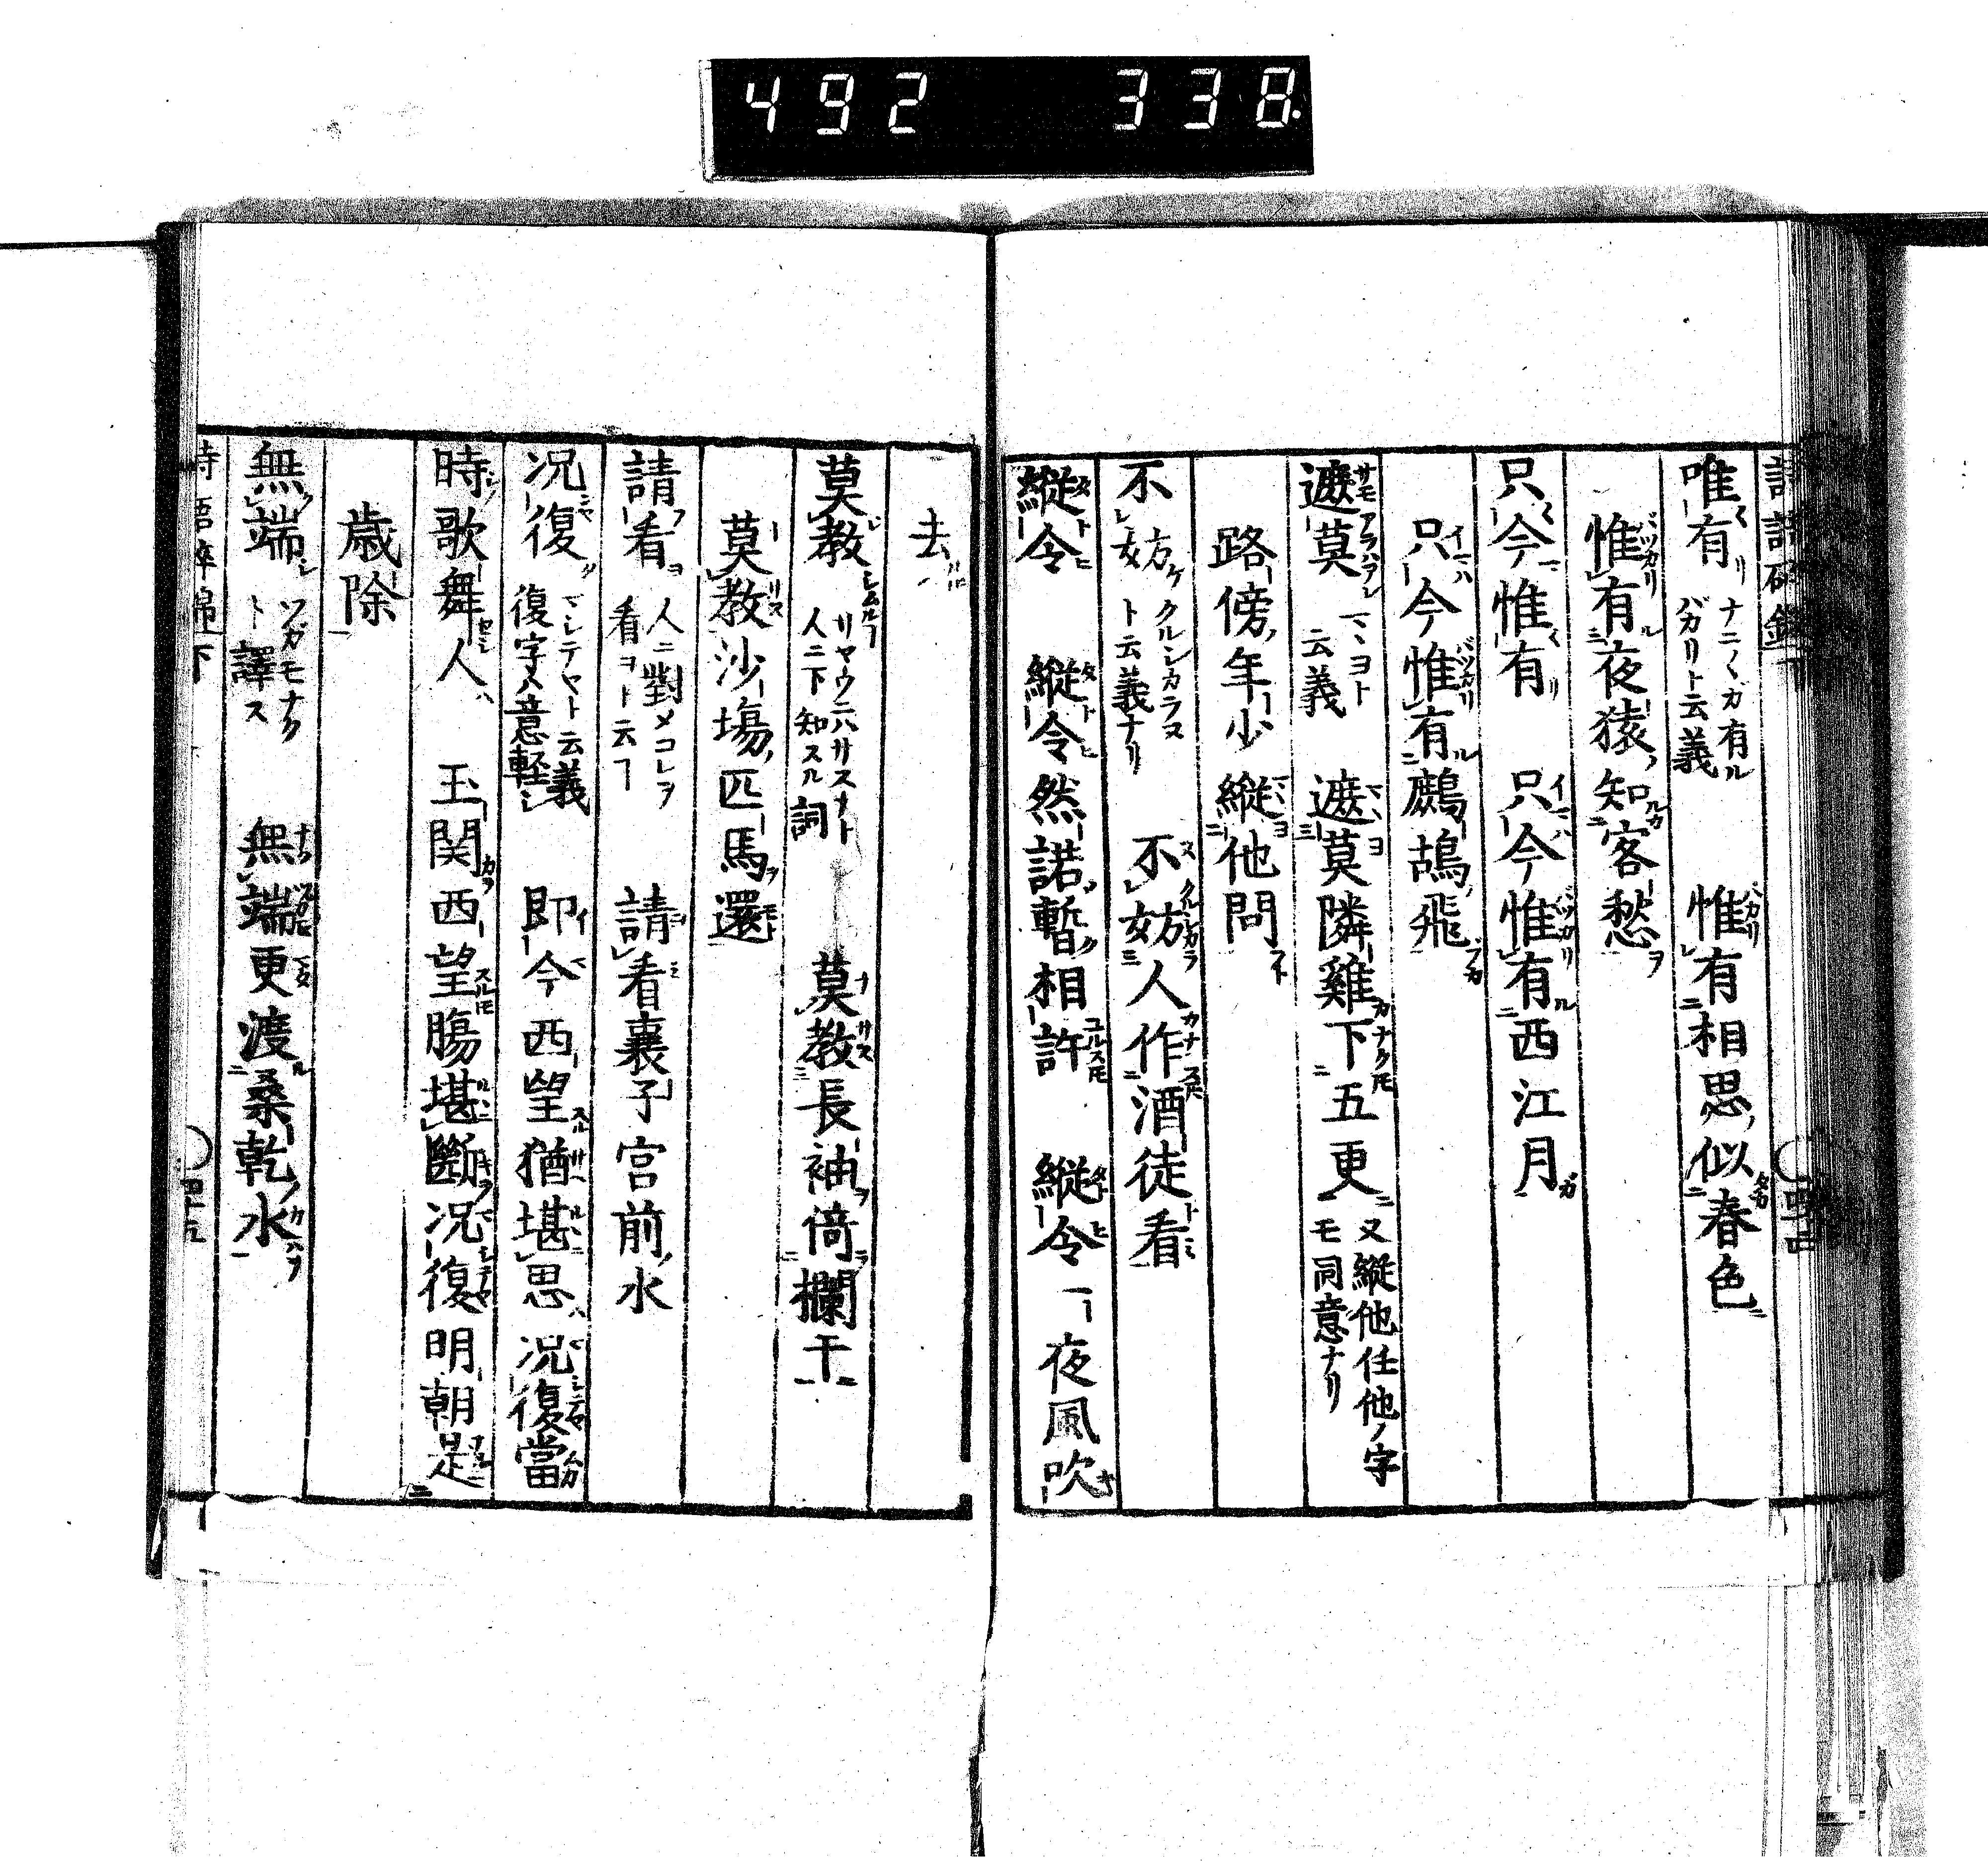 492 338.
唯有 ナニ〱ガ有ル バカリト云義 惟有相思似春色
惟有夜猿知客愁
只今惟有 只今惟有西江月
只今惟有鷓鴣飛
遮莫 マヽヨト云義 遮莫隣雞下五更 又縱他任他ノ字モ同意ナリ
路傍年少縱他問
不妨 クルシカラヌト云義ナリ 不妨人作酒徒看
縱令 縱令然諾暫相許 縱令一夜風吹
去
莫教 人ニ下知スル詞 莫教長袖倚欄干
莫教沙場匹馬還
請看 人ニ對メコレヲ看ヨト云ヿ 請看襄子宮前水
况復 マシテヤト云義復字ハ意輕シ 即今西望猶堪思况復當
時歌舞人 玉関西望腸堪斷况復明朝是
歳除
無端 ソガモナクト譯ス 無端更渡桑乾水